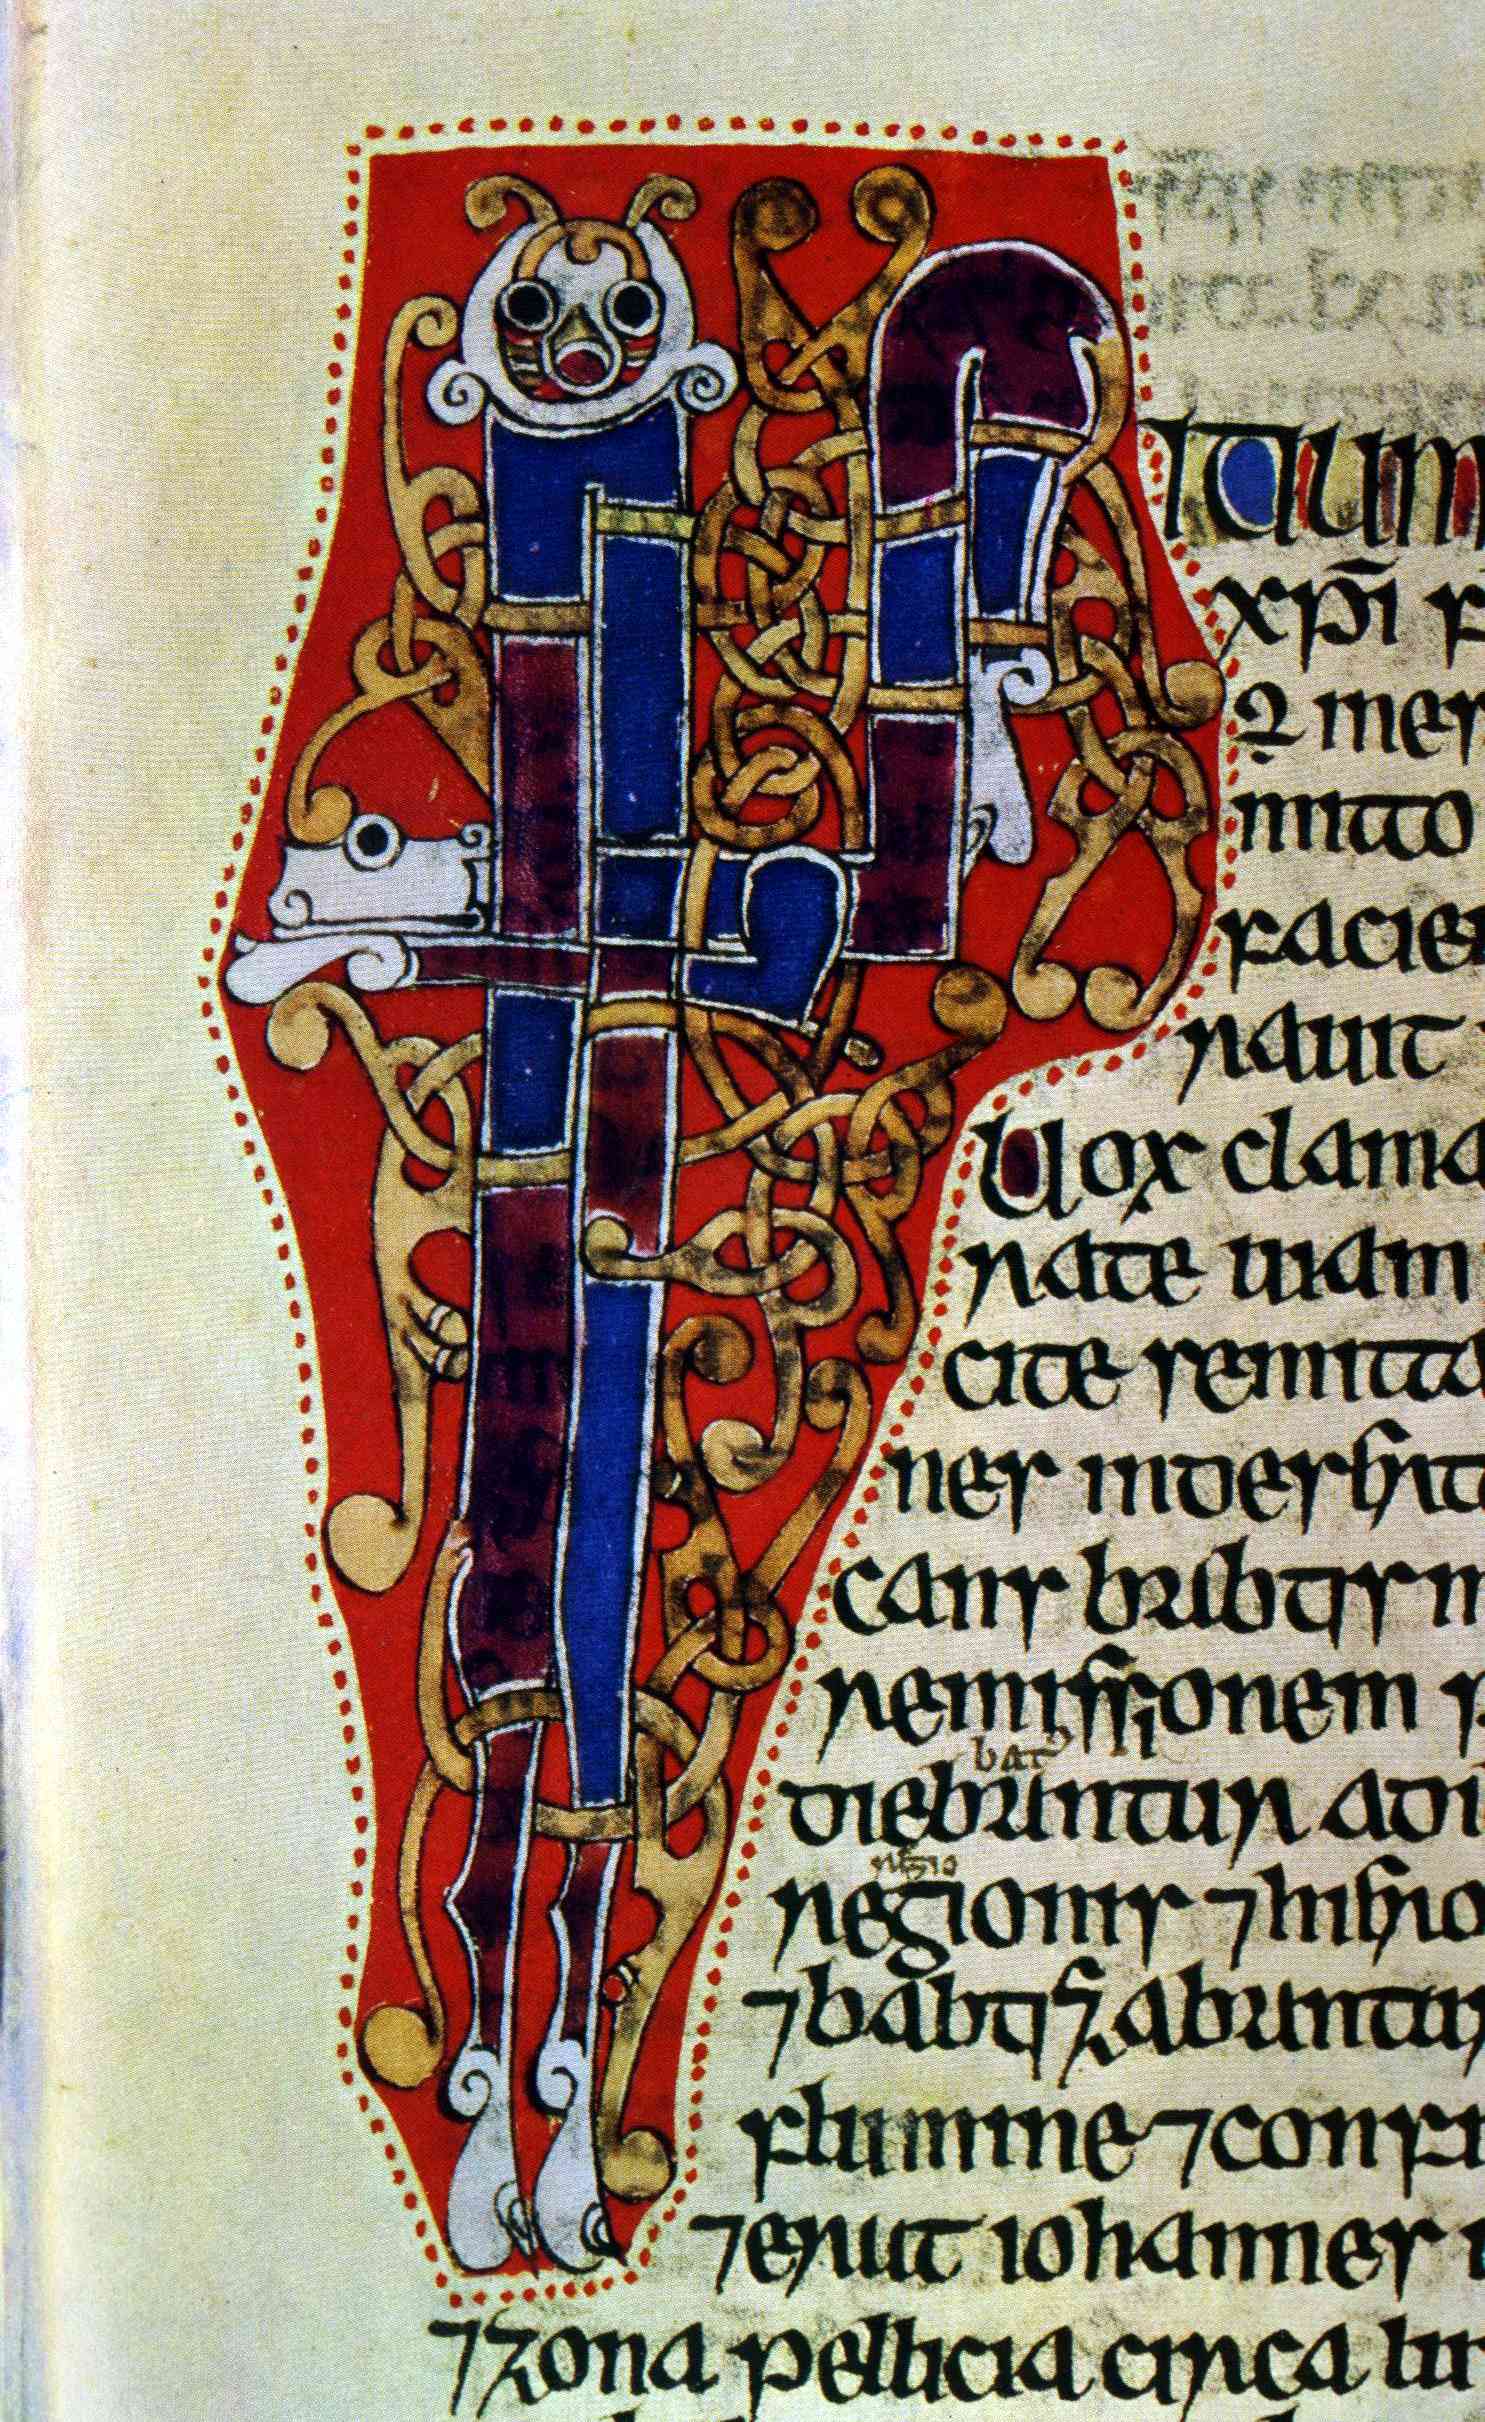 itium
xp̄i f
mes
mitto
facie
rauit
Uox clama
rate uiam
cite semitta
nes indes
cans babtis m
remissionem
bat
diebantur adi
regio
regionis ⁊
⁊ babtizabantur
flumine ⁊ confi
⁊ erat iohannes
⁊ zona pellicia circa lu